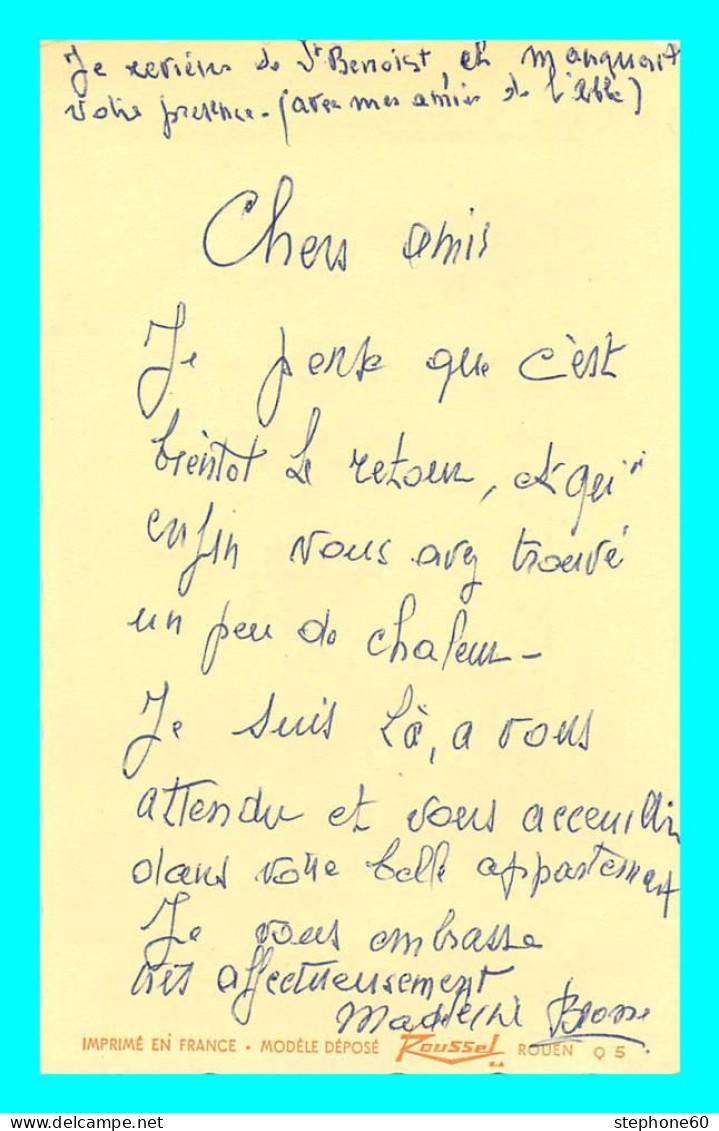 Je reviens de St Benoist, et manquait
votre presence - (avec mes amies de l'Abbé)
Chers amis
Je pense que c'est
bientot le retour, et qui"
enfin vous avez trouvé
un peu de chaleur -
Je suis là, a vous
attendre et vous acceuillir
dans votre belle appartement
Je vous embrasse
très affectueusement
Madeleine
IMPRIMÉ EN FRANCE • MODÈLE DÉPOSÉ Roussel S.A ROUEN 95
stephone60